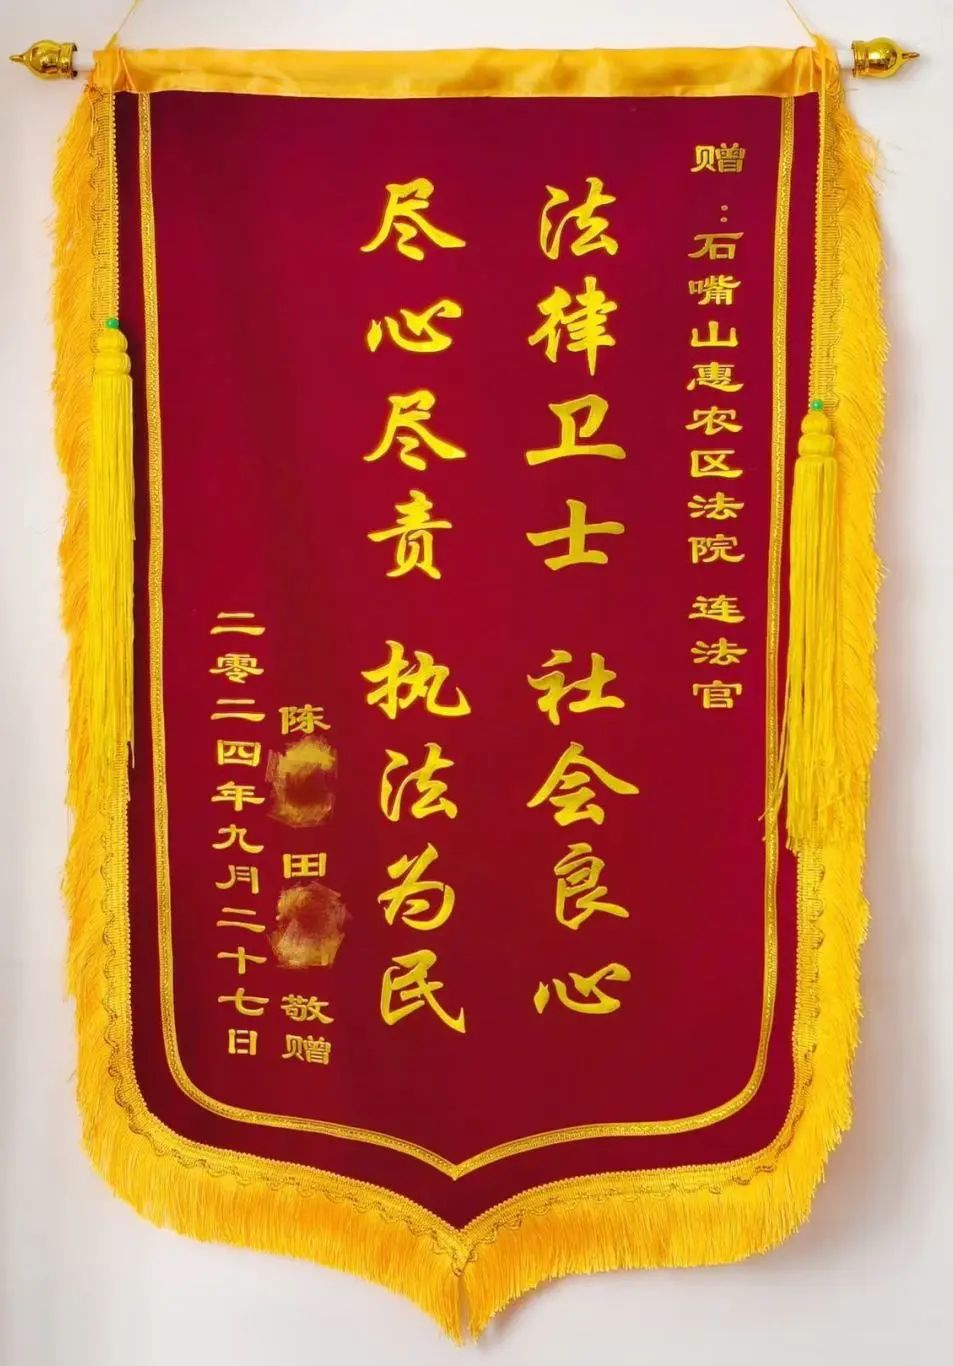 赠：石嘴山惠农区法院 连法官
法律卫士 社会良心
尽心尽责 执法为民
陈 田 敬赠
二零二四年九月二十七日